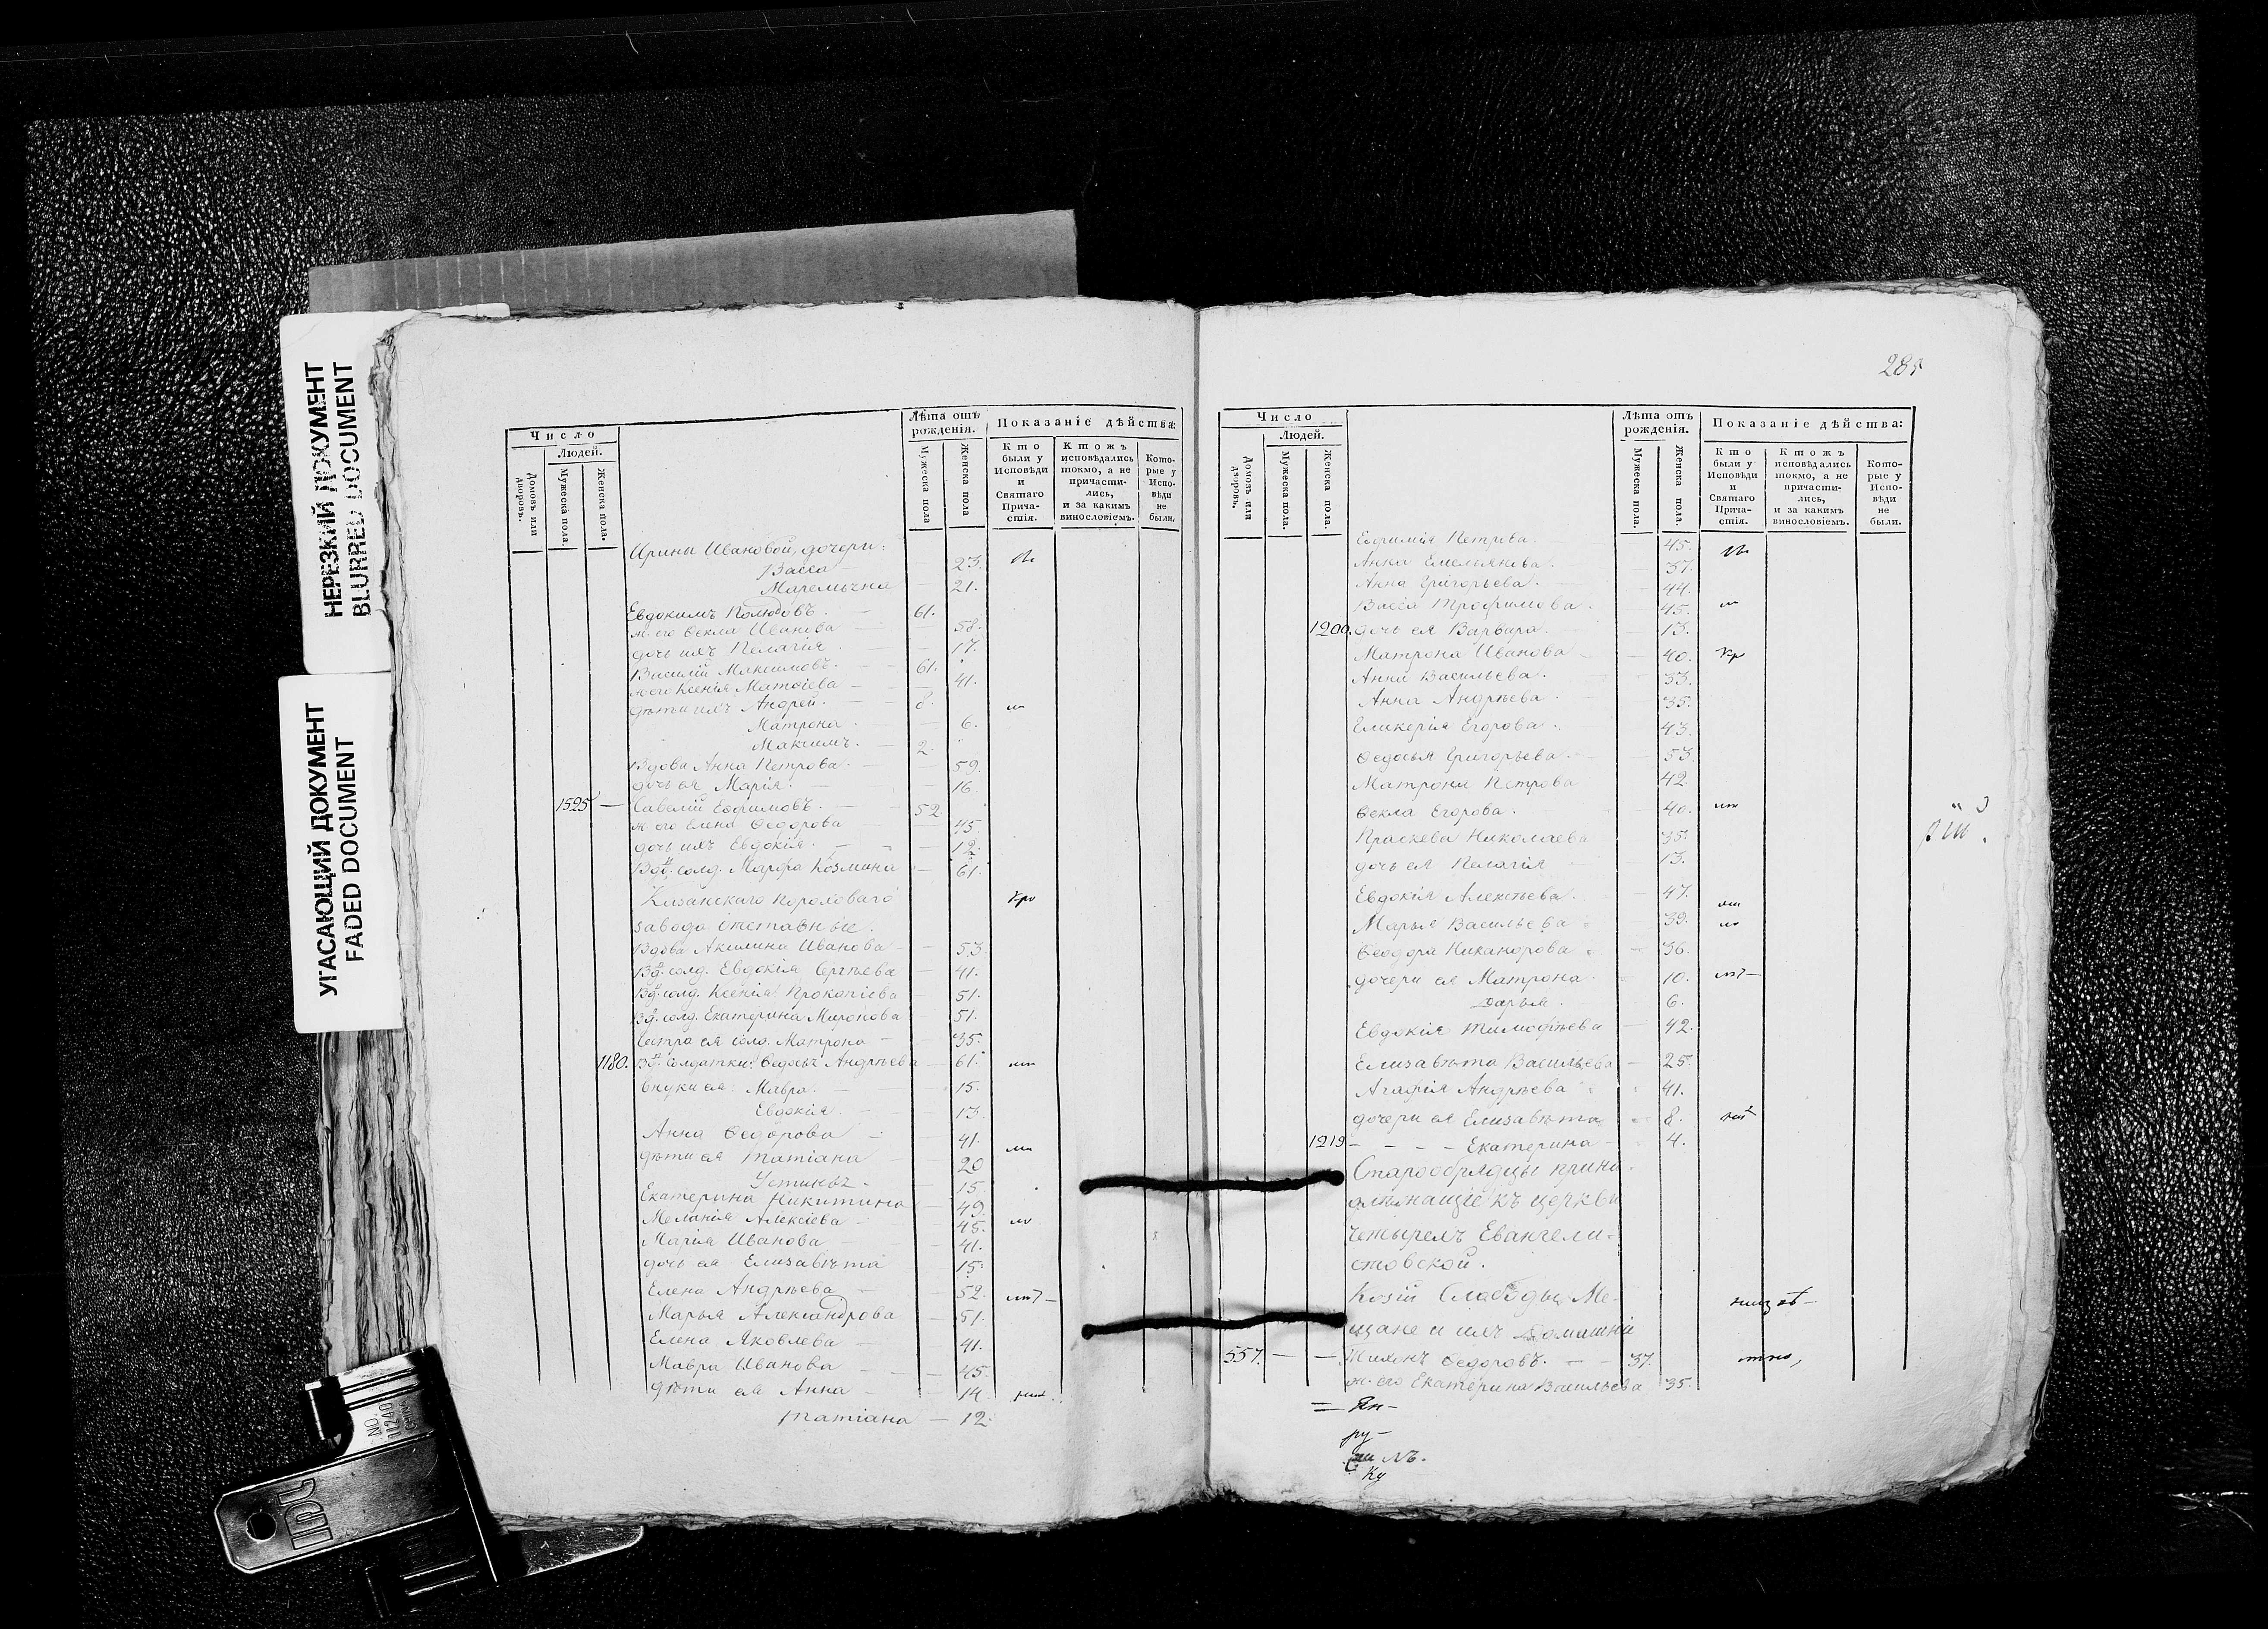 НЕРЕЗКИЙ ДОКУМЕНТ
BLURRED DOCUMENT
УГАСАЮЩИЙ ДОКУМЕНТ
FADED DOCUMENT
NO. 14240
CHINA
Число
Людей.
Домовъ или дворовъ.
Мужеска пола.
Женска пола.
Лѣта отъ рожденія.
Мужеска пола
Женска пола
Показаніе дѣйства:
Кто были у Исповѣди и Святаго Причастія.
Ктожъ исповѣдались токмо, а не причастились, и за какимъ винословіемъ.
Которые у Исповѣди не были.
Ирины Ивановой, дочери:
Васса 23.
21.
Евдокимъ 61.
ж. его Ѳекла Иванова — 58.
дочь ихъ Пелагія — 17.
Василій Максимовъ. — 61.
ж. его Ксенія Матѳіева — 41.
дѣти ихъ Андрей. — 8.
Матрона. — 6.
Максимъ. — 2.
Вдова Анна Петрова. — 59.
дочь ея Марія. — 16.
1525 — Савелій Ефимовъ. — 52.
ж. его Елена Ѳедорова — 45.
дочь ихъ Евдокія. — 12.
Вд. солд. Марфа Козмина — 61.
Казанскаго Пороховаго
завода отставные.
Вдова Акилина Иванова — 53.
Вд. солд. Евдокія Сергѣева — 41.
Вд. солд. Ксенія Прокопіева — 51.
Вд. солд. Екатерина Миронова 51.
Сестра ея солд. Матрона — 35.
1180. Вд. солдатки: Андрѣева — 61.
внуки ея: Мавра. — 15.
Евдокія. — 13.
Анна Ѳедорова — 41.
дѣти ея Татіана — 20
15.
Екатерина Никитина — 49.
Меланія Алексіева — 45.
Марія Иванова — 41.
дочь ея Елизавѣта 15.
Елена Андрѣева — 52.
Марья Александрова — 51.
Елена Яковлева — 41.
Мавра Иванова — 45.
дѣти ея Анна — 14.
Татіана — 12.
285
Число
Людей.
Домовъ или дворовъ.
Мужеска пола.
Женска пола.
Лѣта отъ рожденія.
Мужеска пола.
Женска пола.
Показаніе дѣйства:
Кто были у Исповѣди и Святаго Причастія.
Ктожъ исповѣдались токмо, а не причастились, и за какимъ винословіемъ.
Которые у Исповѣди не были.
Евфимія Петрова. 45.
Анна Емельянова. 37.
Анна Григорьева. 44.
Васса Трофимова. 45.
1200. дочь ея Варвара. — 13.
Матрона Иванова — 40.
Анна Васильева. 33.
Анна Андрѣева. 35.
Гликерія Егорова. 43.
Ѳедосья Григорьева. 53.
Матрона Петрова 42.
Ѳекла Егорова. 40.
Праскева Николаева 35.
дочь ея Пелагія 13.
Евдокія Алексѣева. 47.
Марья Васильева 39.
Ѳеодора Никанорова — 36.
дочери ея Матрона. 10.
Дарья. 6.
Евдокія Тимофѣева — 42.
Елизавѣта Васильева — 25.
Агафія Андрѣева 41.
дочери ея Елизавѣта 8.
1219 — — — Екатерина — 4.
Старообрядцы прина-
длѣжащіе къ церкви
четырехъ Евангели-
стовской.
Козій Слабоды Ме-
щане и ихъ домашніе
557. — — Тихонъ Ѳедоровъ. — 37.
ж. его Екатерина Васильева 35.